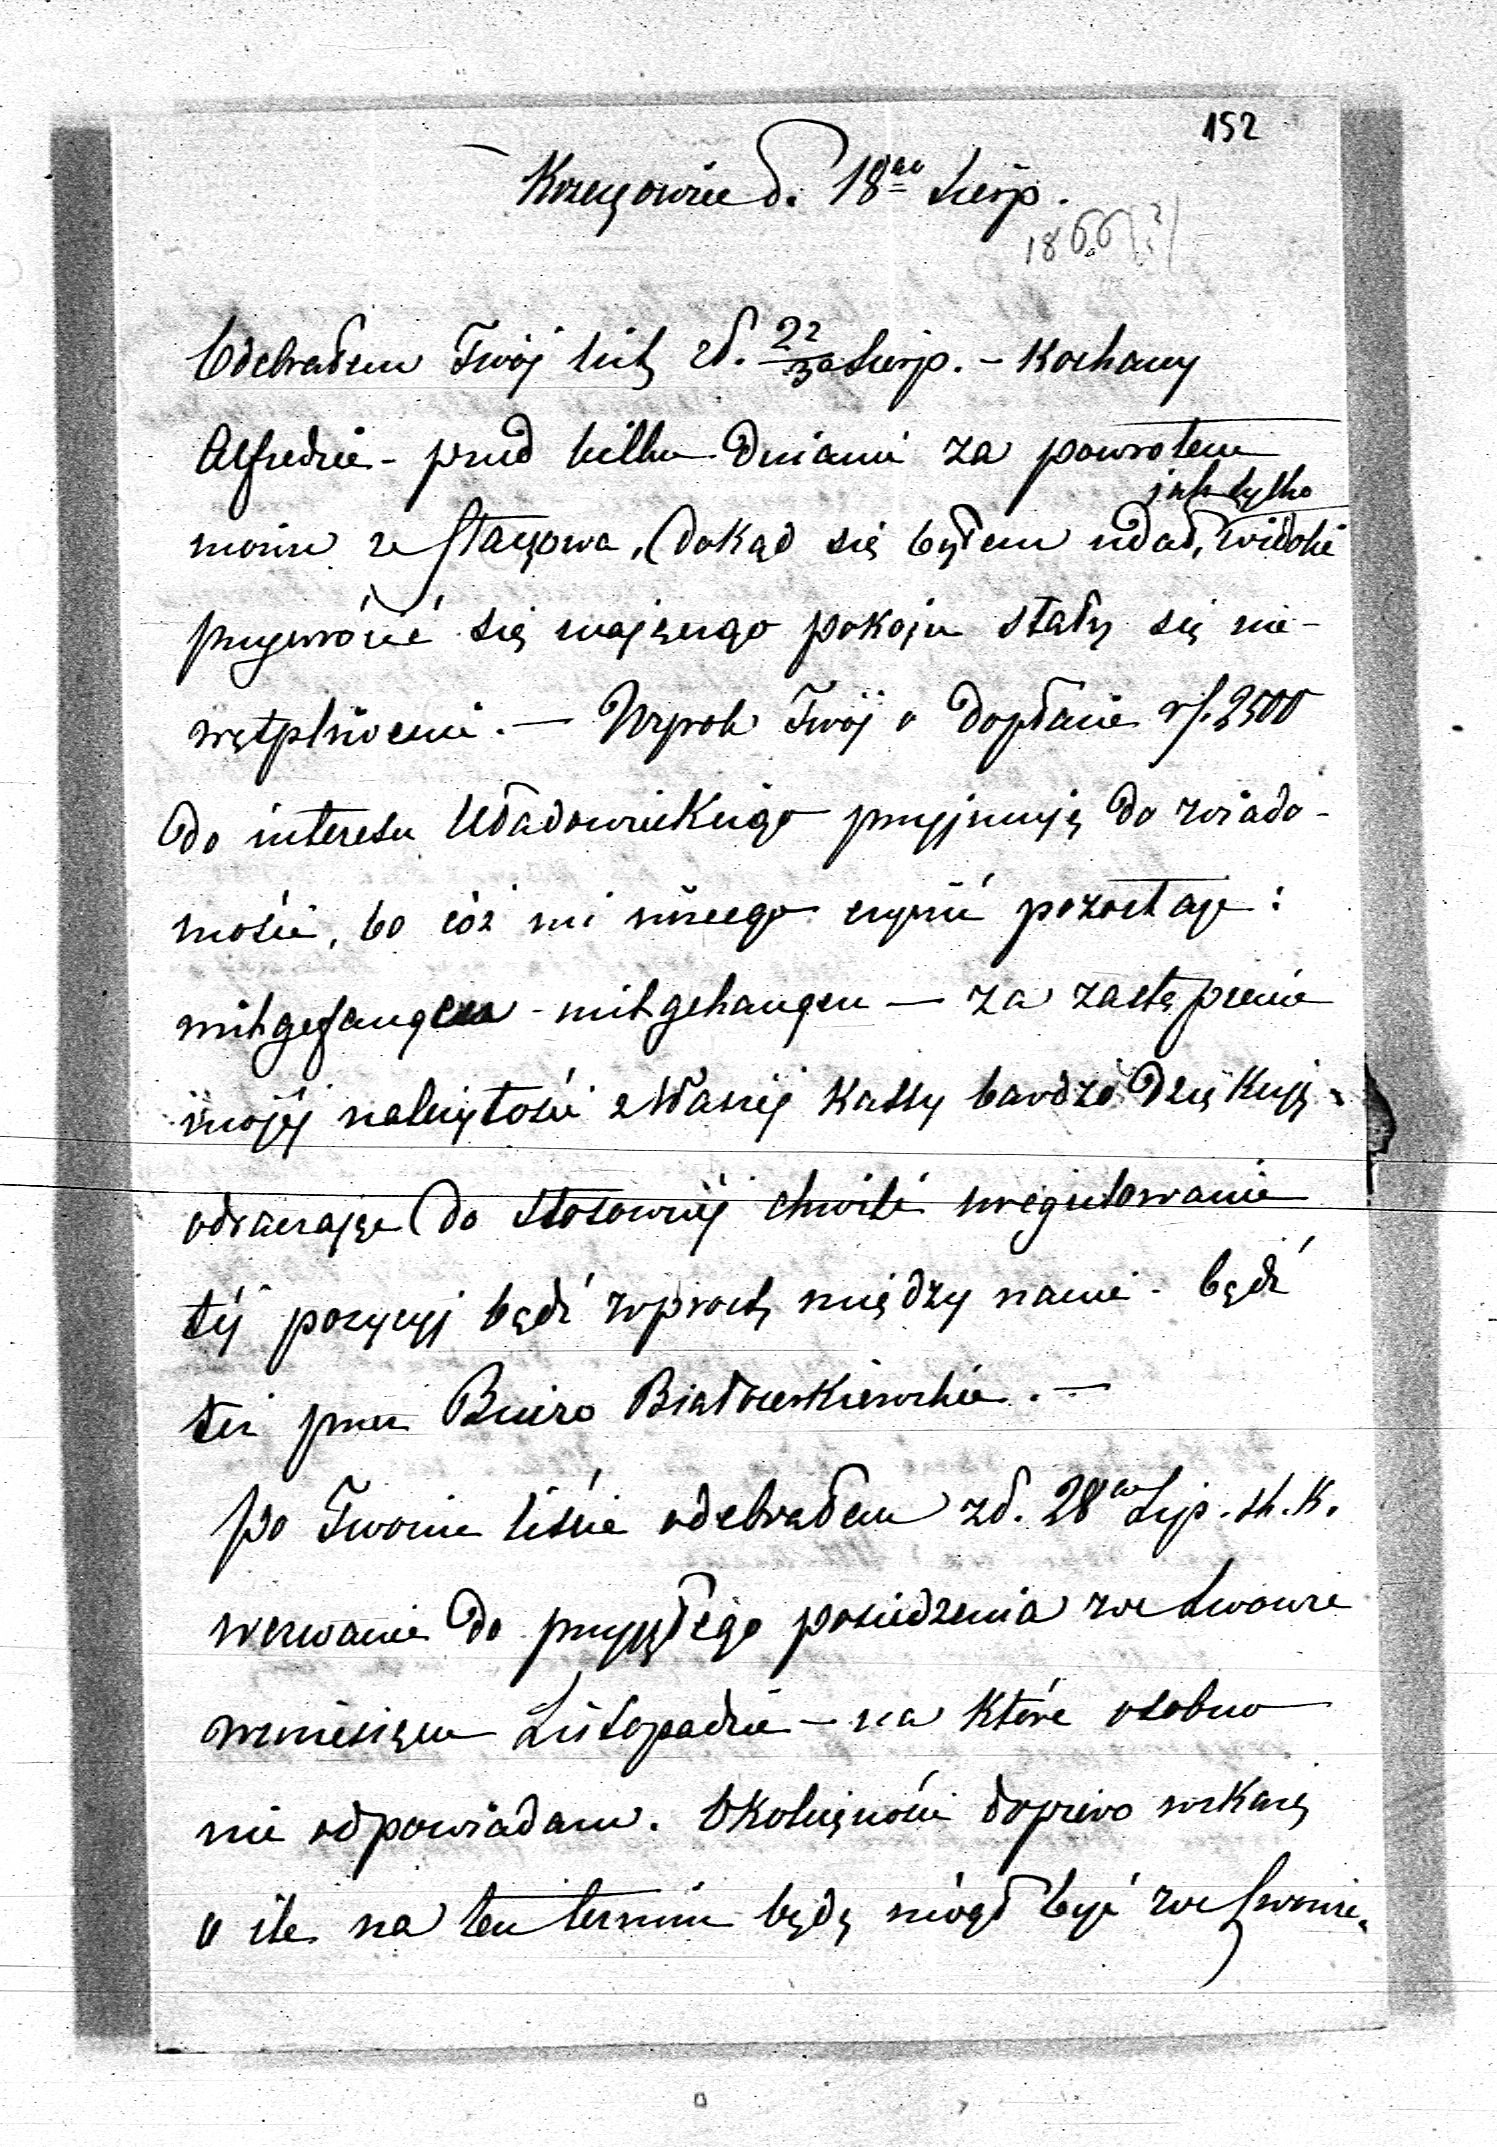 152
Krzeszowice d. 18go Sierp.
1866(?)
Odebrałem Twój list zd. 22/30 Sierp. – Kochany
Alfredzie – przed kilku dniami za powrotem
jak tylko
moim ze Staszowa, dokąd się byłem udał, widoki
przywrócić się mającego pokoju stały się nie-
wątpliwemi. – Wyrok Twój o dopłacie rf. 2500
do interesu Władowickiego przyjmuję do wiado-
mości, bo cóż mi innego czynić pozostaje:
mitgefangen – mitgehangen – za zastąpienie
mojéj należytości z Waszéj kassy bardzo dziękuję
odraczając do stosownéj chwili uregulowanie
téj pozycyj bądź wprost między nami – bądź
też przez Biuro Białoruskiewskie. –
po Twoim liście odebrałem zd. 28go Lip. st. k.
wezwanie do przyszłego posiedzenia we Lwowie
w miesiącu Listopadzie – na które osobno
nie odpowiadam. Okoliczności dopiero wskażą
o ile na ten termin będę mógł być we Lwowie,